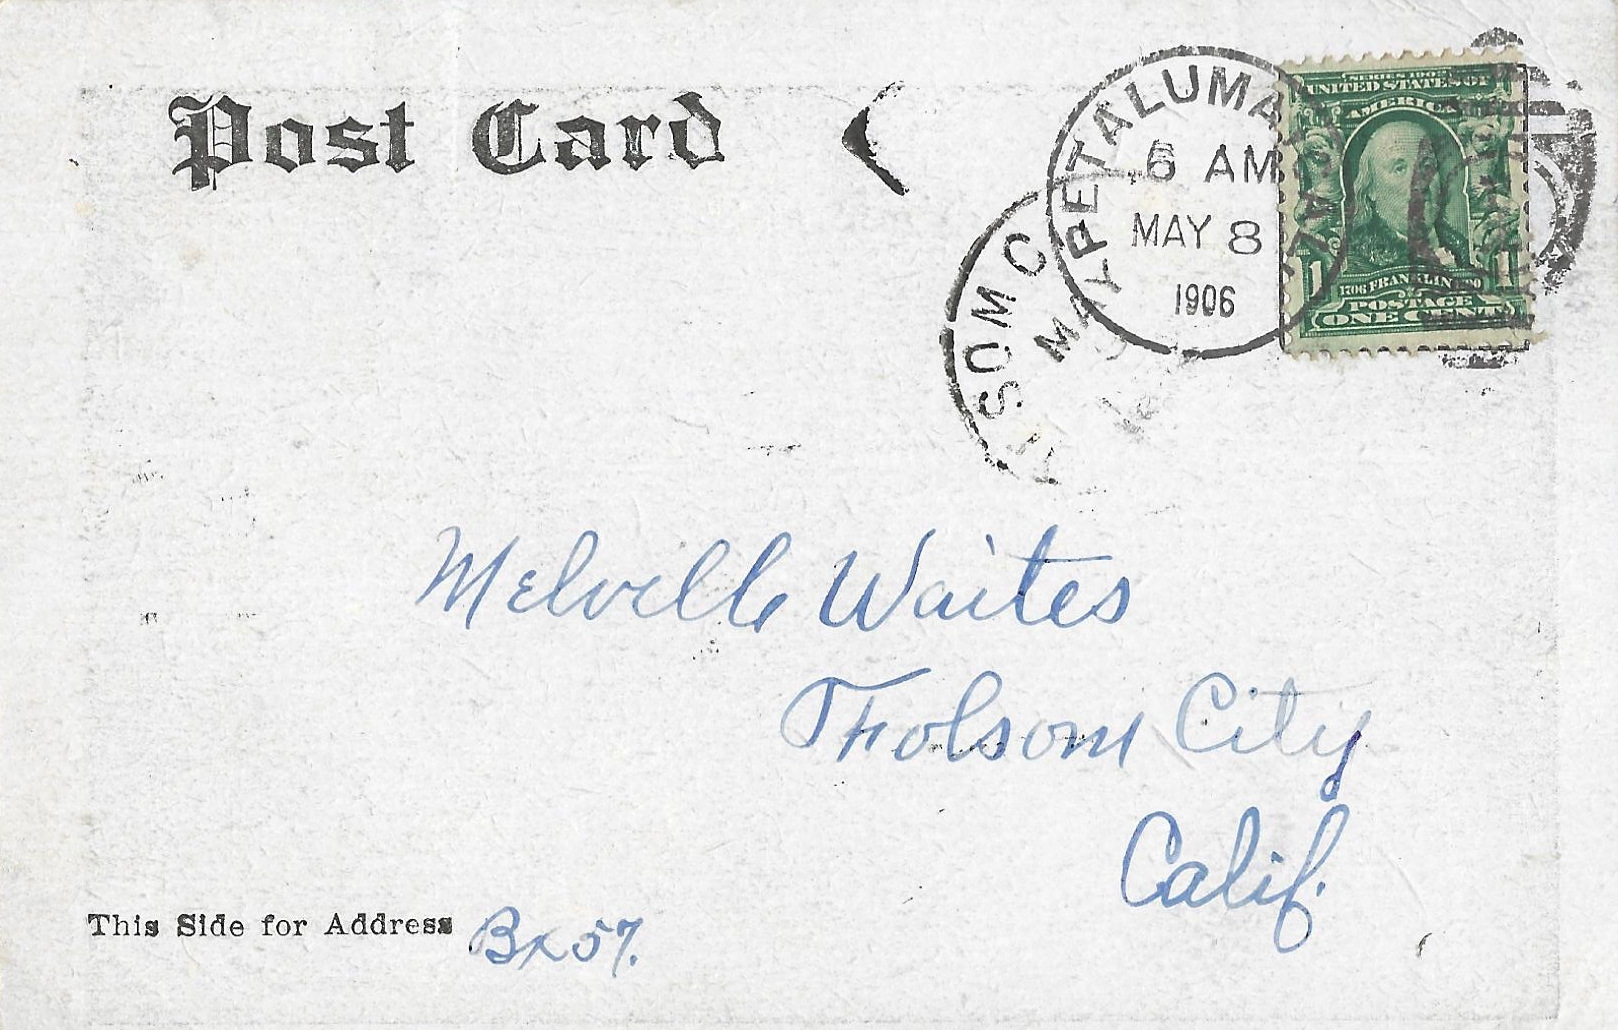 Post Card
PETALUMA, CAL.
6 AM
MAY 8
1906
SOM C
MAY
SERIES 1902
UNITED STATES OF
AMERICA
1706 FRANKLIN 1790
POSTAGE
1 1
ONE CENT
Melville Waites
Folsom City
Calif.
This Side for Address
Bx 57.